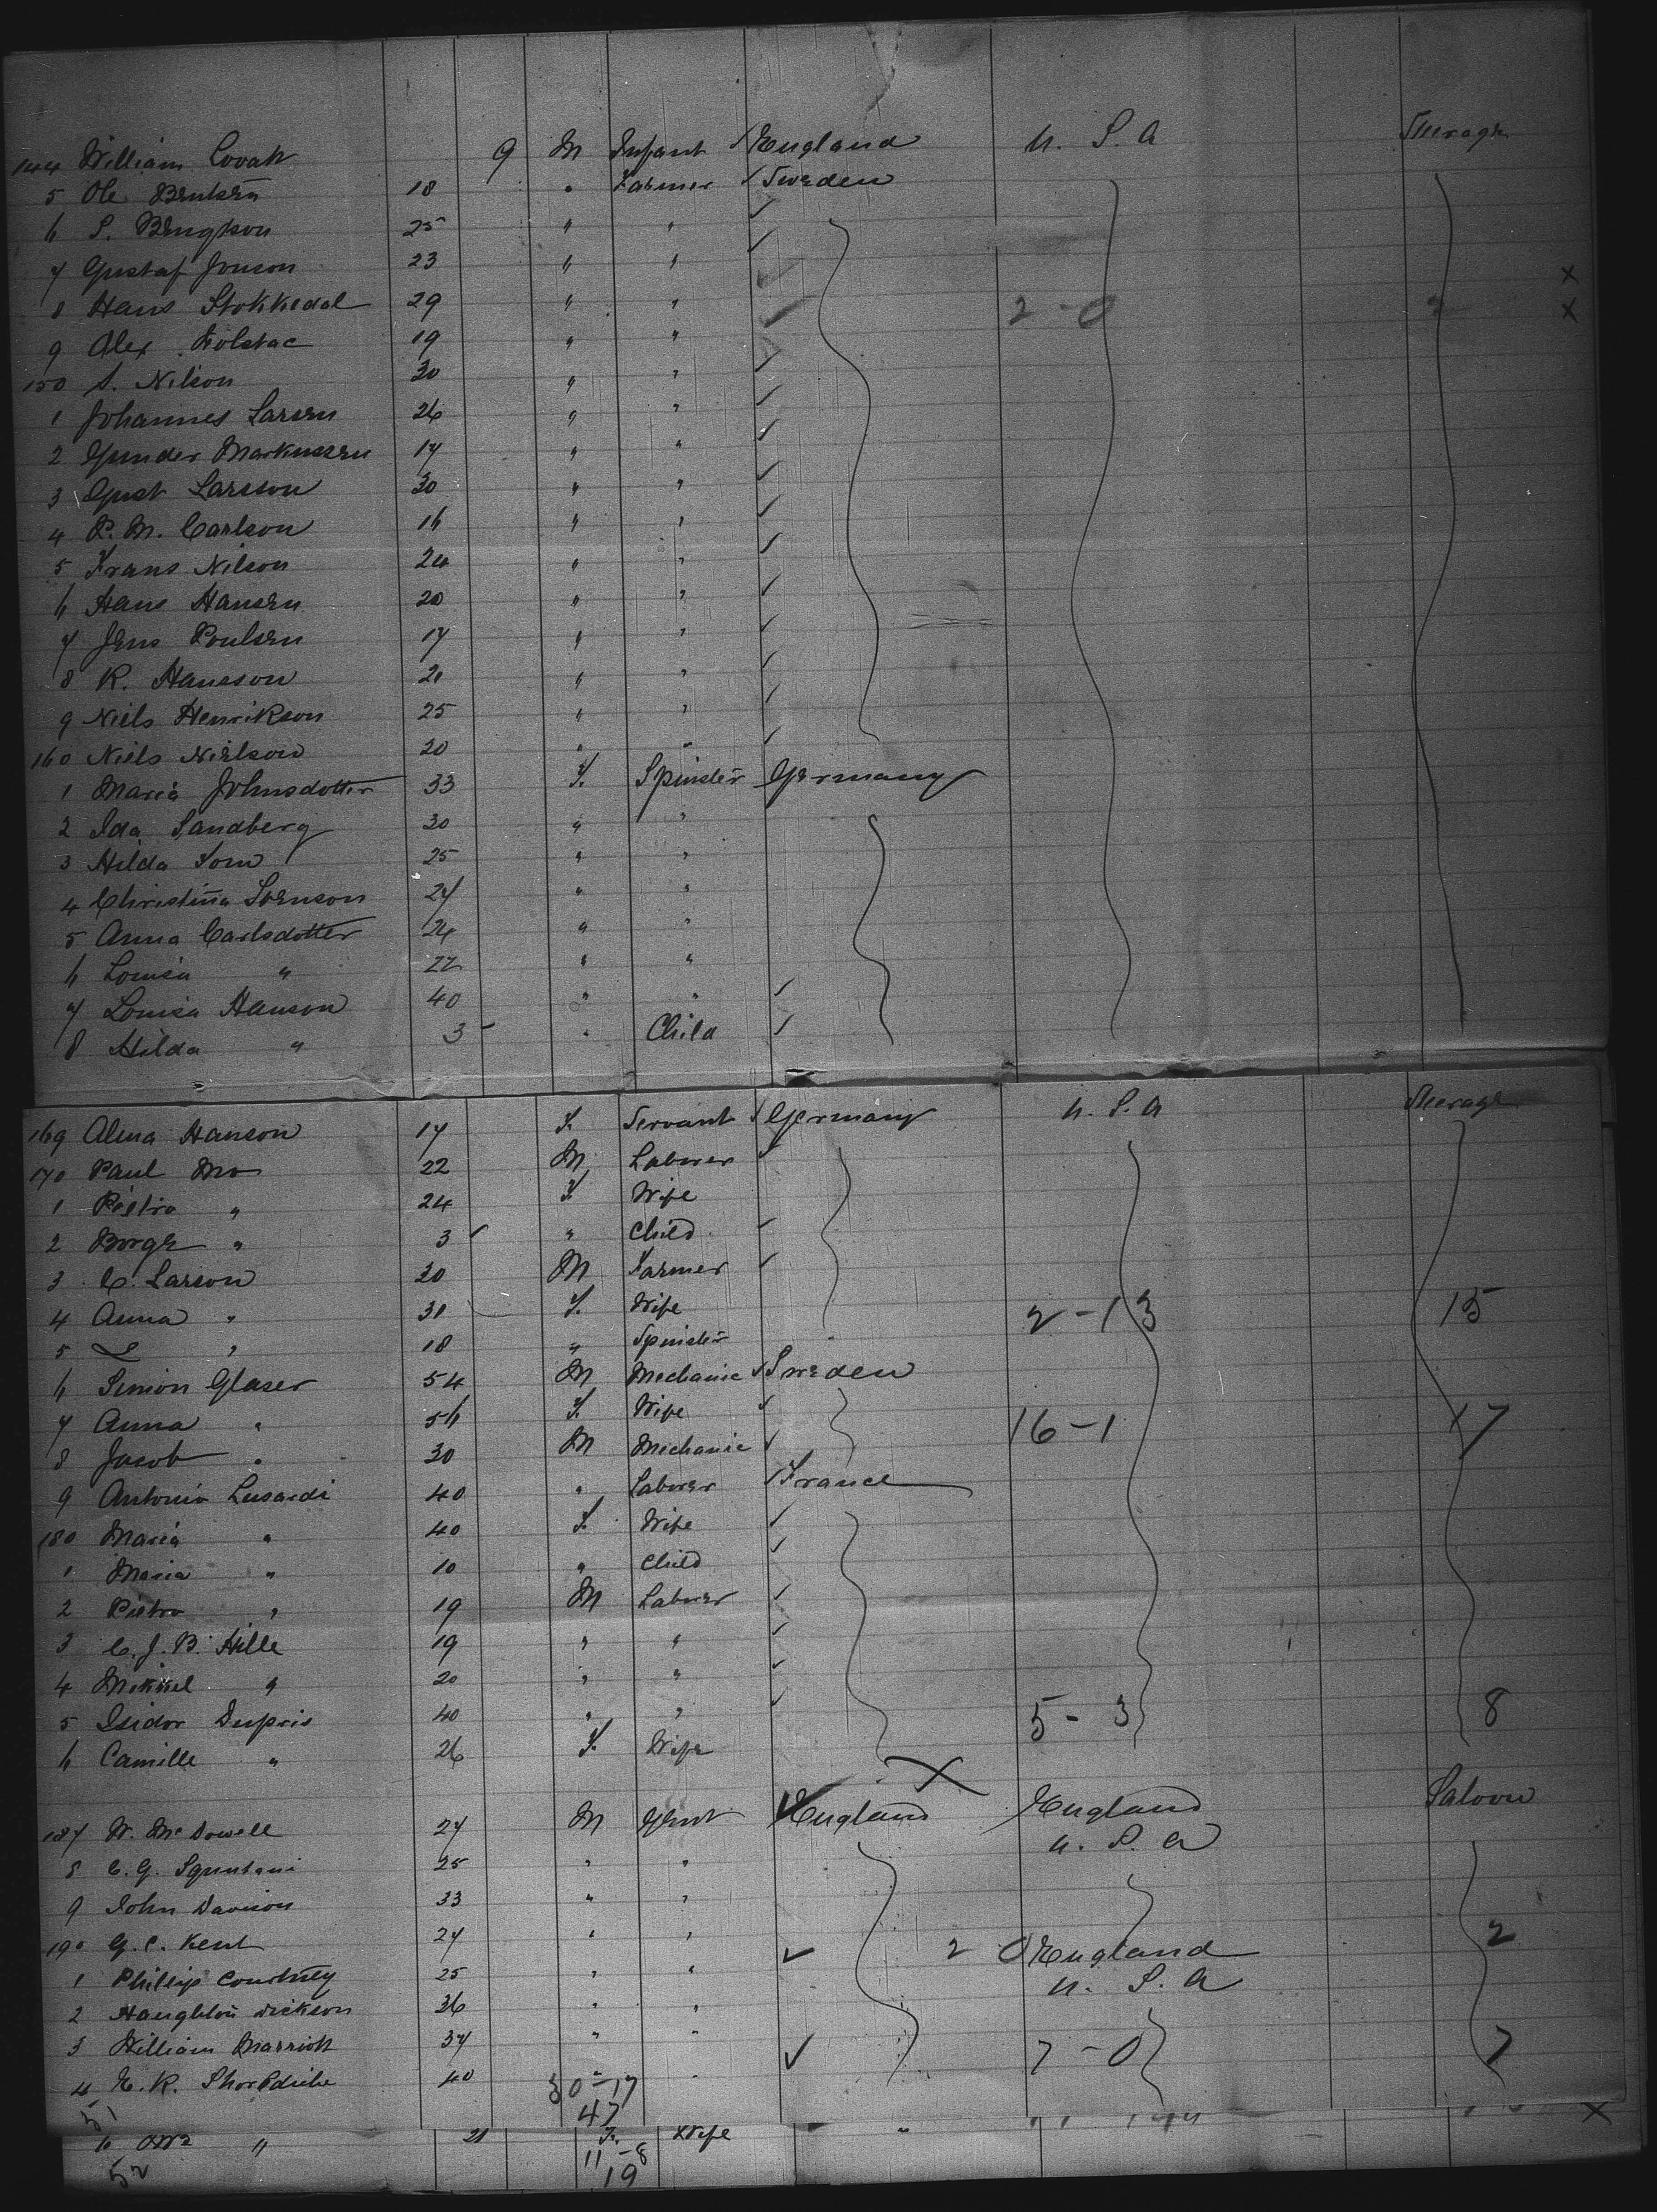 144 William Lovatt 9 M Infant ✓ England U. S. A Steerage
5 Ole Bentsen 18 " Farmer ✓ Sweden
6 S. Bengtson 25 " " ✓
7 Gustaf Jonson 23 " " ✓
8 Hans Stokkedal 29 " " 2-0 X
9 Alex 19 " "
150 S. Nilson 30 " " ✓
1 Johannes Larsen 26 " " ✓
2 Gunder Markussen 17 " " ✓
3 Gust Larsson 30 " " ✓
4 P. M. Carlson 16 " " ✓
5 Frans Nilson 24 " " ✓
6 Hans Hansen 20 " " ✓
7 Jens Poulsen 17 " " ✓
8 K. Hansson 21 " " ✓
9 Niels Henrikson 25 " " ✓
160 Niels Nielson 20 " " ✓
1 Maria Johnsdotter 33 F. Spinster Germany
2 Ida Sandberg 30 " "
3 Hilda 25 " "
4 Christina Svenson 27 " "
5 Anna Carlsdotter 24 " "
6 Louisa " 22 " "
7 Louisa Hanson 40 " " ✓
8 Hilda " 3 " Child ✓
169 Alma Hanson 17 F. Servant ✓ Germany U. S. A Steerage
170 Paul Mo 22 M Laborer ✓
1 Pietra " 24 F. Wife
2 Borge " 3 ✓ " Child ✓
3 C. Larson 30 M Farmer ✓
4 Anna " 31 F. Wife 2-13 15
5 " 18 " Spinster
6 Simon Glaser 54 M Mechanic ✓ Sweden
7 Anna " 56 F. Wife ✓ 16-1 17
8 Jacob " 30 M Mechanic ✓
9 Antonio Lusardi 40 " Laborer ✓ France
180 Maria " 40 F. Wife ✓
1 Maria " 10 " Child ✓
2 Pietro " 19 M Laborer ✓
3 C. J. B. Hille 19 " " ✓
4 Mikkel " 20 " " ✓
5 Isidor Dupris 40 " " ✓ 5-3 8
6 Camille " 26 F. Wife
X
187 W. McDowell 27 M Gent ✓ England England Saloon
U. S. A
8 C. G. 25 " "
9 John Davison 33 " "
190 G. C. Kent 27 " " ✓ 2 0 England 2
1 Phillip Courtney 25 " " U. S. A
2 Haughton Dickson 36 " "
3 William Marriott 37 " " ✓ 7-0 7
4 E. K. 40 " "
30-17
51 47
6 " 21 F. Wife " X
11-8
52 19